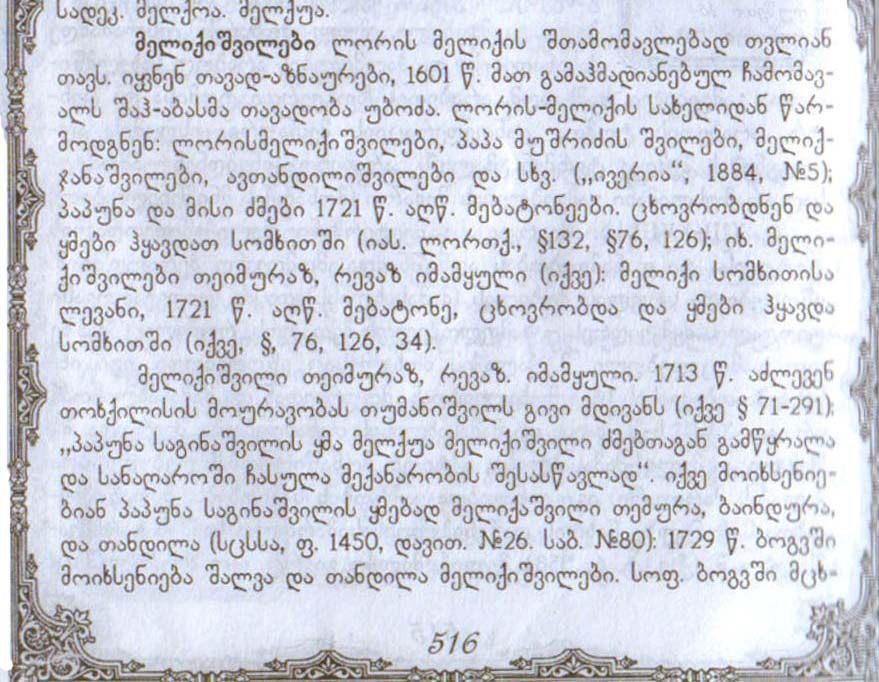 სადეკ. მელქოა. მელქუა.
მელიქიშვილები ლორის მელიქის შთამომავლებად თვლიან
თავს. იყვნენ თავად-აზნაურები, 1601 წ. მათ გამაჰმადიანებულ ჩამომავ-
ალს შაჰ-აბასმა თავადობა უბოძა. ლორის-მელიქის სახელიდან წარ-
მოდგნენ: ლორისმელიქიშვილები, პაპა მუშრიძის შვილები, მელიქ-
ჯანაშვილები, ავთანდილიშვილები და სხვ. („ივერია“, 1884, №5);
პაპუნა და მისი ძმები 1721 წ. აღწ. მებატონეები. ცხოვრობდნენ და
ყმები ჰყავდათ სომხითში (იას. ლორთქ., §132, §76, 126); იხ. მელი-
ქიშვილები თეიმურაზ, რევაზ იმამყული (იქვე): მელიქი სომხითისა
ლევანი, 1721 წ. აღწ. მებატონე, ცხოვრობდა და ყმები ჰყავდა
სომხითში (იქვე, §, 76, 126, 34).
მელიქიშვილი თეიმურაზ, რევაზ. იმამყული. 1713 წ. აძლევენ
თოხქილისის მოურავობას თუმანიშვილს გივი მდივანს (იქვე § 71-291);
„პაპუნა საგინაშვილის ყმა მელქუა მელიქიშვილი ძმებთაგან გამწყრალა
და სანაღაროში ჩასულა მექანარობის შესასწავლად“. იქვე მოიხსენიე-
ბიან პაპუნა საგინაშვილის ყმებად მელიქაშვილი თემურა, ბაინდურა,
და თანდილა (სცსსა, ფ. 1450, დავით. №26. საბ. №80): 1729 წ. ბოგვში
მოიხსენიება შალვა და თანდილა მელიქიშვილები. სოფ. ბოგვში მცხ-
516